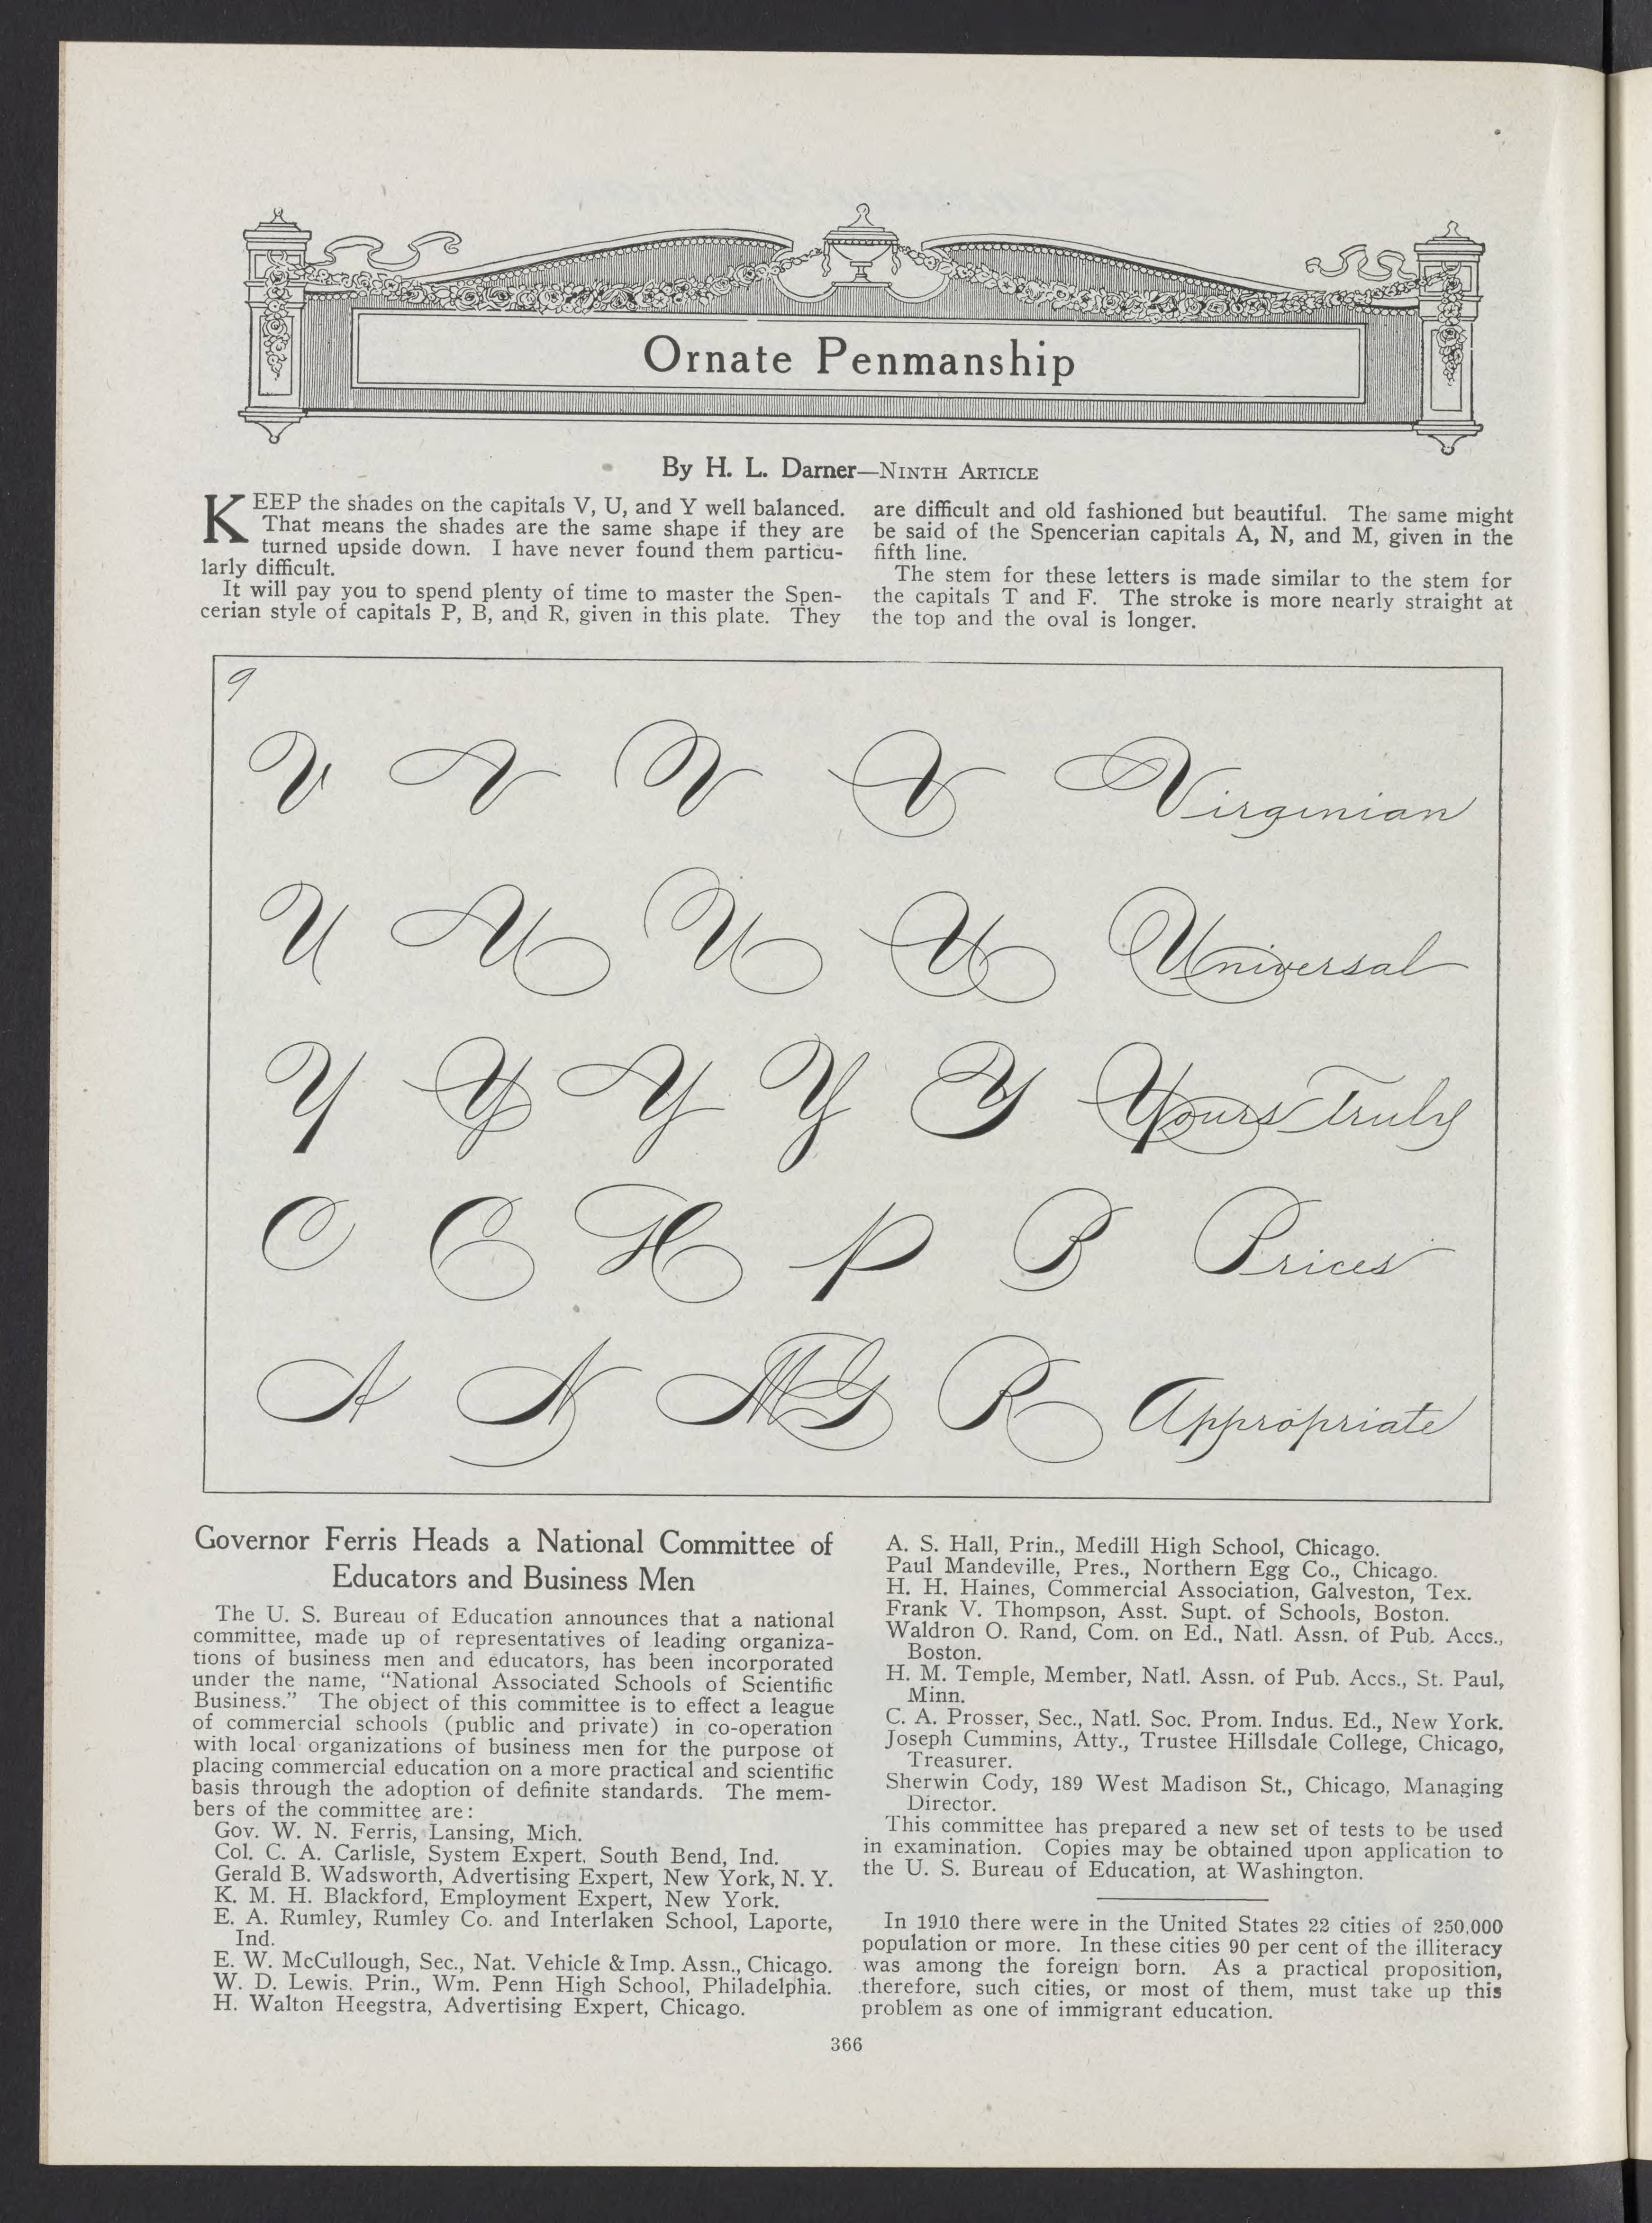 Ornate Penmanship
By H. L. Darner—NINTH ARTICLE
KEEP the shades on the capitals V, U, and Y well balanced.
That means the shades are the same shape if they are
turned upside down. I have never found them particu-
larly difficult.
It will pay you to spend plenty of time to master the Spen-
cerian style of capitals P, B, and R, given in this plate. They
are difficult and old fashioned but beautiful. The same might
be said of the Spencerian capitals A, N, and M, given in the
fifth line.
The stem for these letters is made similar to the stem for
the capitals T and F. The stroke is more nearly straight at
the top and the oval is longer.
9
V V V V Virginian
U U U U Universal
Y Y Y Y Y Yours Truly
C C H P B Prices
A N M G R Appropriate
Governor Ferris Heads a National Committee of
Educators and Business Men
The U. S. Bureau of Education announces that a national
committee, made up of representatives of leading organiza-
tions of business men and educators, has been incorporated
under the name, “National Associated Schools of Scientific
Business.” The object of this committee is to effect a league
of commercial schools (public and private) in co-operation
with local organizations of business men for the purpose of
placing commercial education on a more practical and scientific
basis through the adoption of definite standards. The mem-
bers of the committee are:
Gov. W. N. Ferris, Lansing, Mich.
Col. C. A. Carlisle, System Expert, South Bend, Ind.
Gerald B. Wadsworth, Advertising Expert, New York, N. Y.
K. M. H. Blackford, Employment Expert, New York.
E. A. Rumley, Rumley Co. and Interlaken School, Laporte,
Ind.
E. W. McCullough, Sec., Nat. Vehicle & Imp. Assn., Chicago.
W. D. Lewis, Prin., Wm. Penn High School, Philadelphia.
H. Walton Heegstra, Advertising Expert, Chicago.
A. S. Hall, Prin., Medill High School, Chicago.
Paul Mandeville, Pres., Northern Egg Co., Chicago.
H. H. Haines, Commercial Association, Galveston, Tex.
Frank V. Thompson, Asst. Supt. of Schools, Boston.
Waldron O. Rand, Com. on Ed., Natl. Assn. of Pub. Accs.,
Boston.
H. M. Temple, Member, Natl. Assn. of Pub. Accs., St. Paul,
Minn.
C. A. Prosser, Sec., Natl. Soc. Prom. Indus. Ed., New York.
Joseph Cummins, Atty., Trustee Hillsdale College, Chicago,
Treasurer.
Sherwin Cody, 189 West Madison St., Chicago, Managing
Director.
This committee has prepared a new set of tests to be used
in examination. Copies may be obtained upon application to
the U. S. Bureau of Education, at Washington.
In 1910 there were in the United States 22 cities of 250,000
population or more. In these cities 90 per cent of the illiteracy
was among the foreign born. As a practical proposition,
therefore, such cities, or most of them, must take up this
problem as one of immigrant education.
366